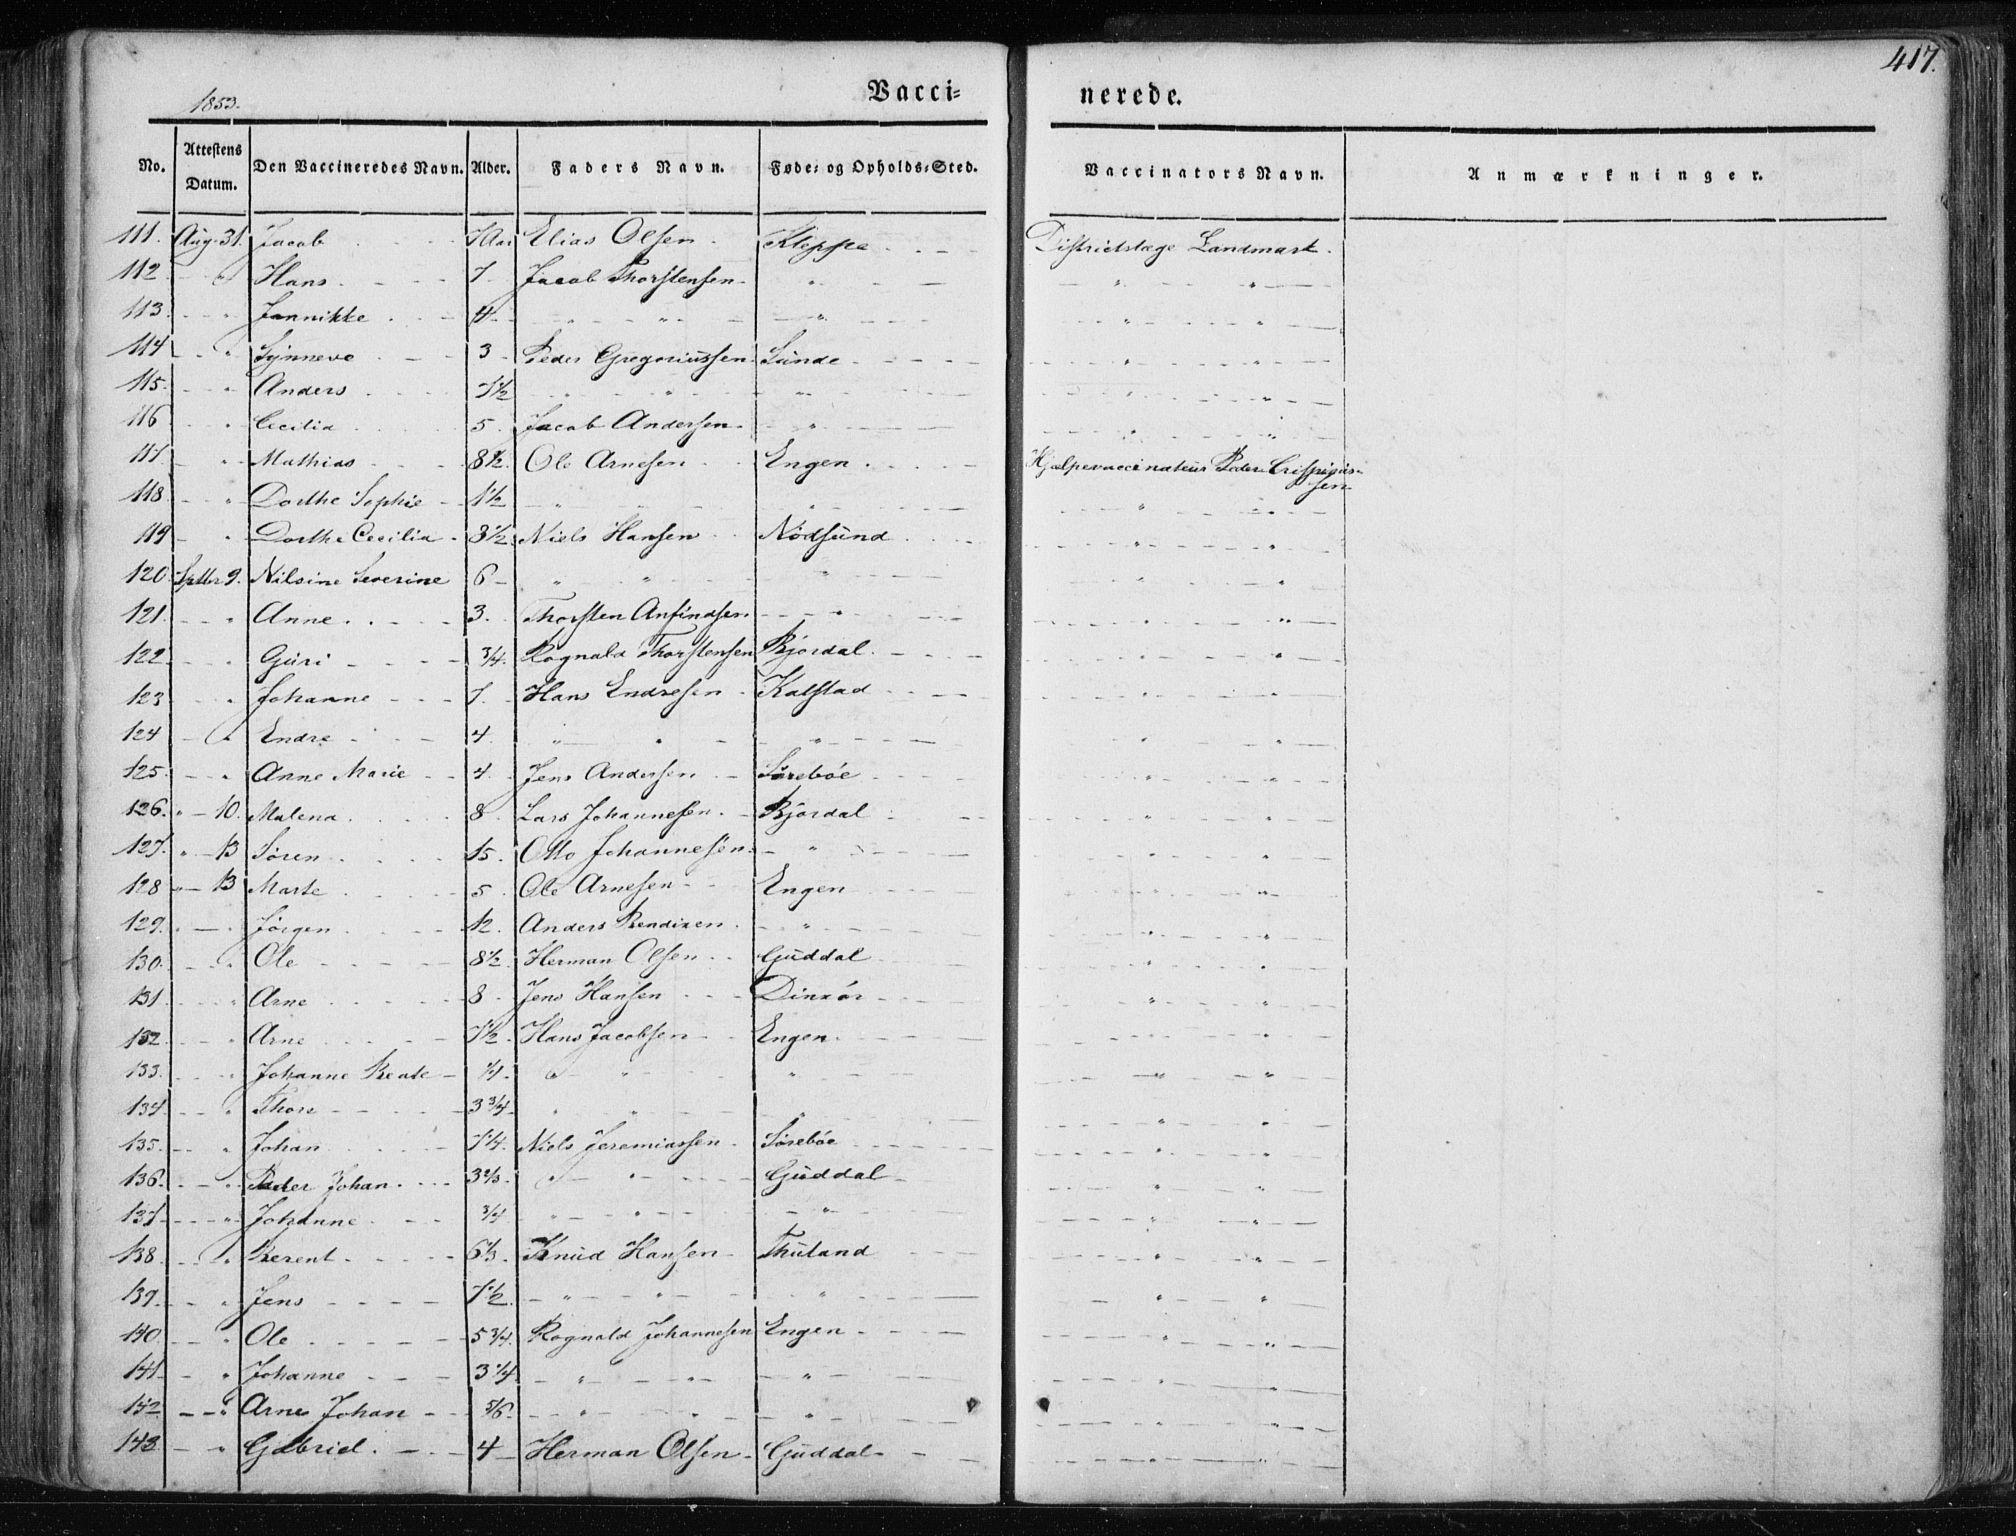 417.
1853.
Vacci= nerede.
No. Attestens Datum. Den Vaccineredes Navn. Alder. Faders Navn. Føde= og Opholds=Sted. Vaccinators Navn. Anmærkninger.
111. Aug. 31. Jacob Elias Olsen Kleppe Districtslæge Landmark.
112 " Hans 7 Jacob Thorstensen " " "
113. " Jannikke 4 " " " " "
114 " Synneve 3 Peder Gregoriussen Sunde " "
115. " Anders 7½ " " " " "
116 " Cecilia 5 Jacob Andersen " " "
117 " Mathias 8½ Ole Arnesen Engen Hjælpevaccinateur Peder
118. " Dorthe Sophie 1½ " " " "
119 " Dorthe Cecilia 3½ Niels Hansen Nødsund " "
120 Septbr 9. Nilsine Severine 6 " " " " "
121. " Anne 3. Thorsten Anfindsen " " "
122 " Guri ¾. Rognald Thorstensen Bjordal " "
123 " Johanne 7. Hans Endresen Kalstad " "
124 " Endre 4. " " " " "
125. " Anne Marie 4 Jens Andersen Sørebøe " "
126. " 10. Malena 8 Lars Johannesen Bjordal " "
127. " 13 Søren 15. Otto Johannesen " " "
128 " 13 Marte 5. Ole Arnesen Engen " "
129. " Jørgen 12. Anders Bendixen " " "
130. " Ole 8½ Herman Olsen Guddal " "
131 " Arne 8 Jens Hansen " "
132 " Arne 7½ Hans Jacobsen Engen " "
133. " Johanne Beate ¼. " " " " "
134 " Thore 3¾ " " " " "
135. " Johan 7¼. Niels Jeremiassen Sørebøe " "
136. " Peder Johan 3⅔. " " Guddal " "
137 " Johanne ¾ " " " " "
138. " Berent 6⅓. Knud Hansen Thuland " "
139. " Jens 7½ " " " " "
140. " Ole 5¾. Rognald Johannesen Engen " "
141 " Johanne 3¼ " " " " "
142 " Arne Johan 5/6. " " " " "
143. " Gabriel 4 Herman Olsen Guddal " "